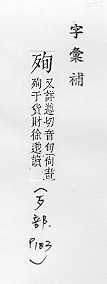 字彙補
殉
又詳遵切音旬尙書
殉于貨財徐邈讀
(歹部. P183)